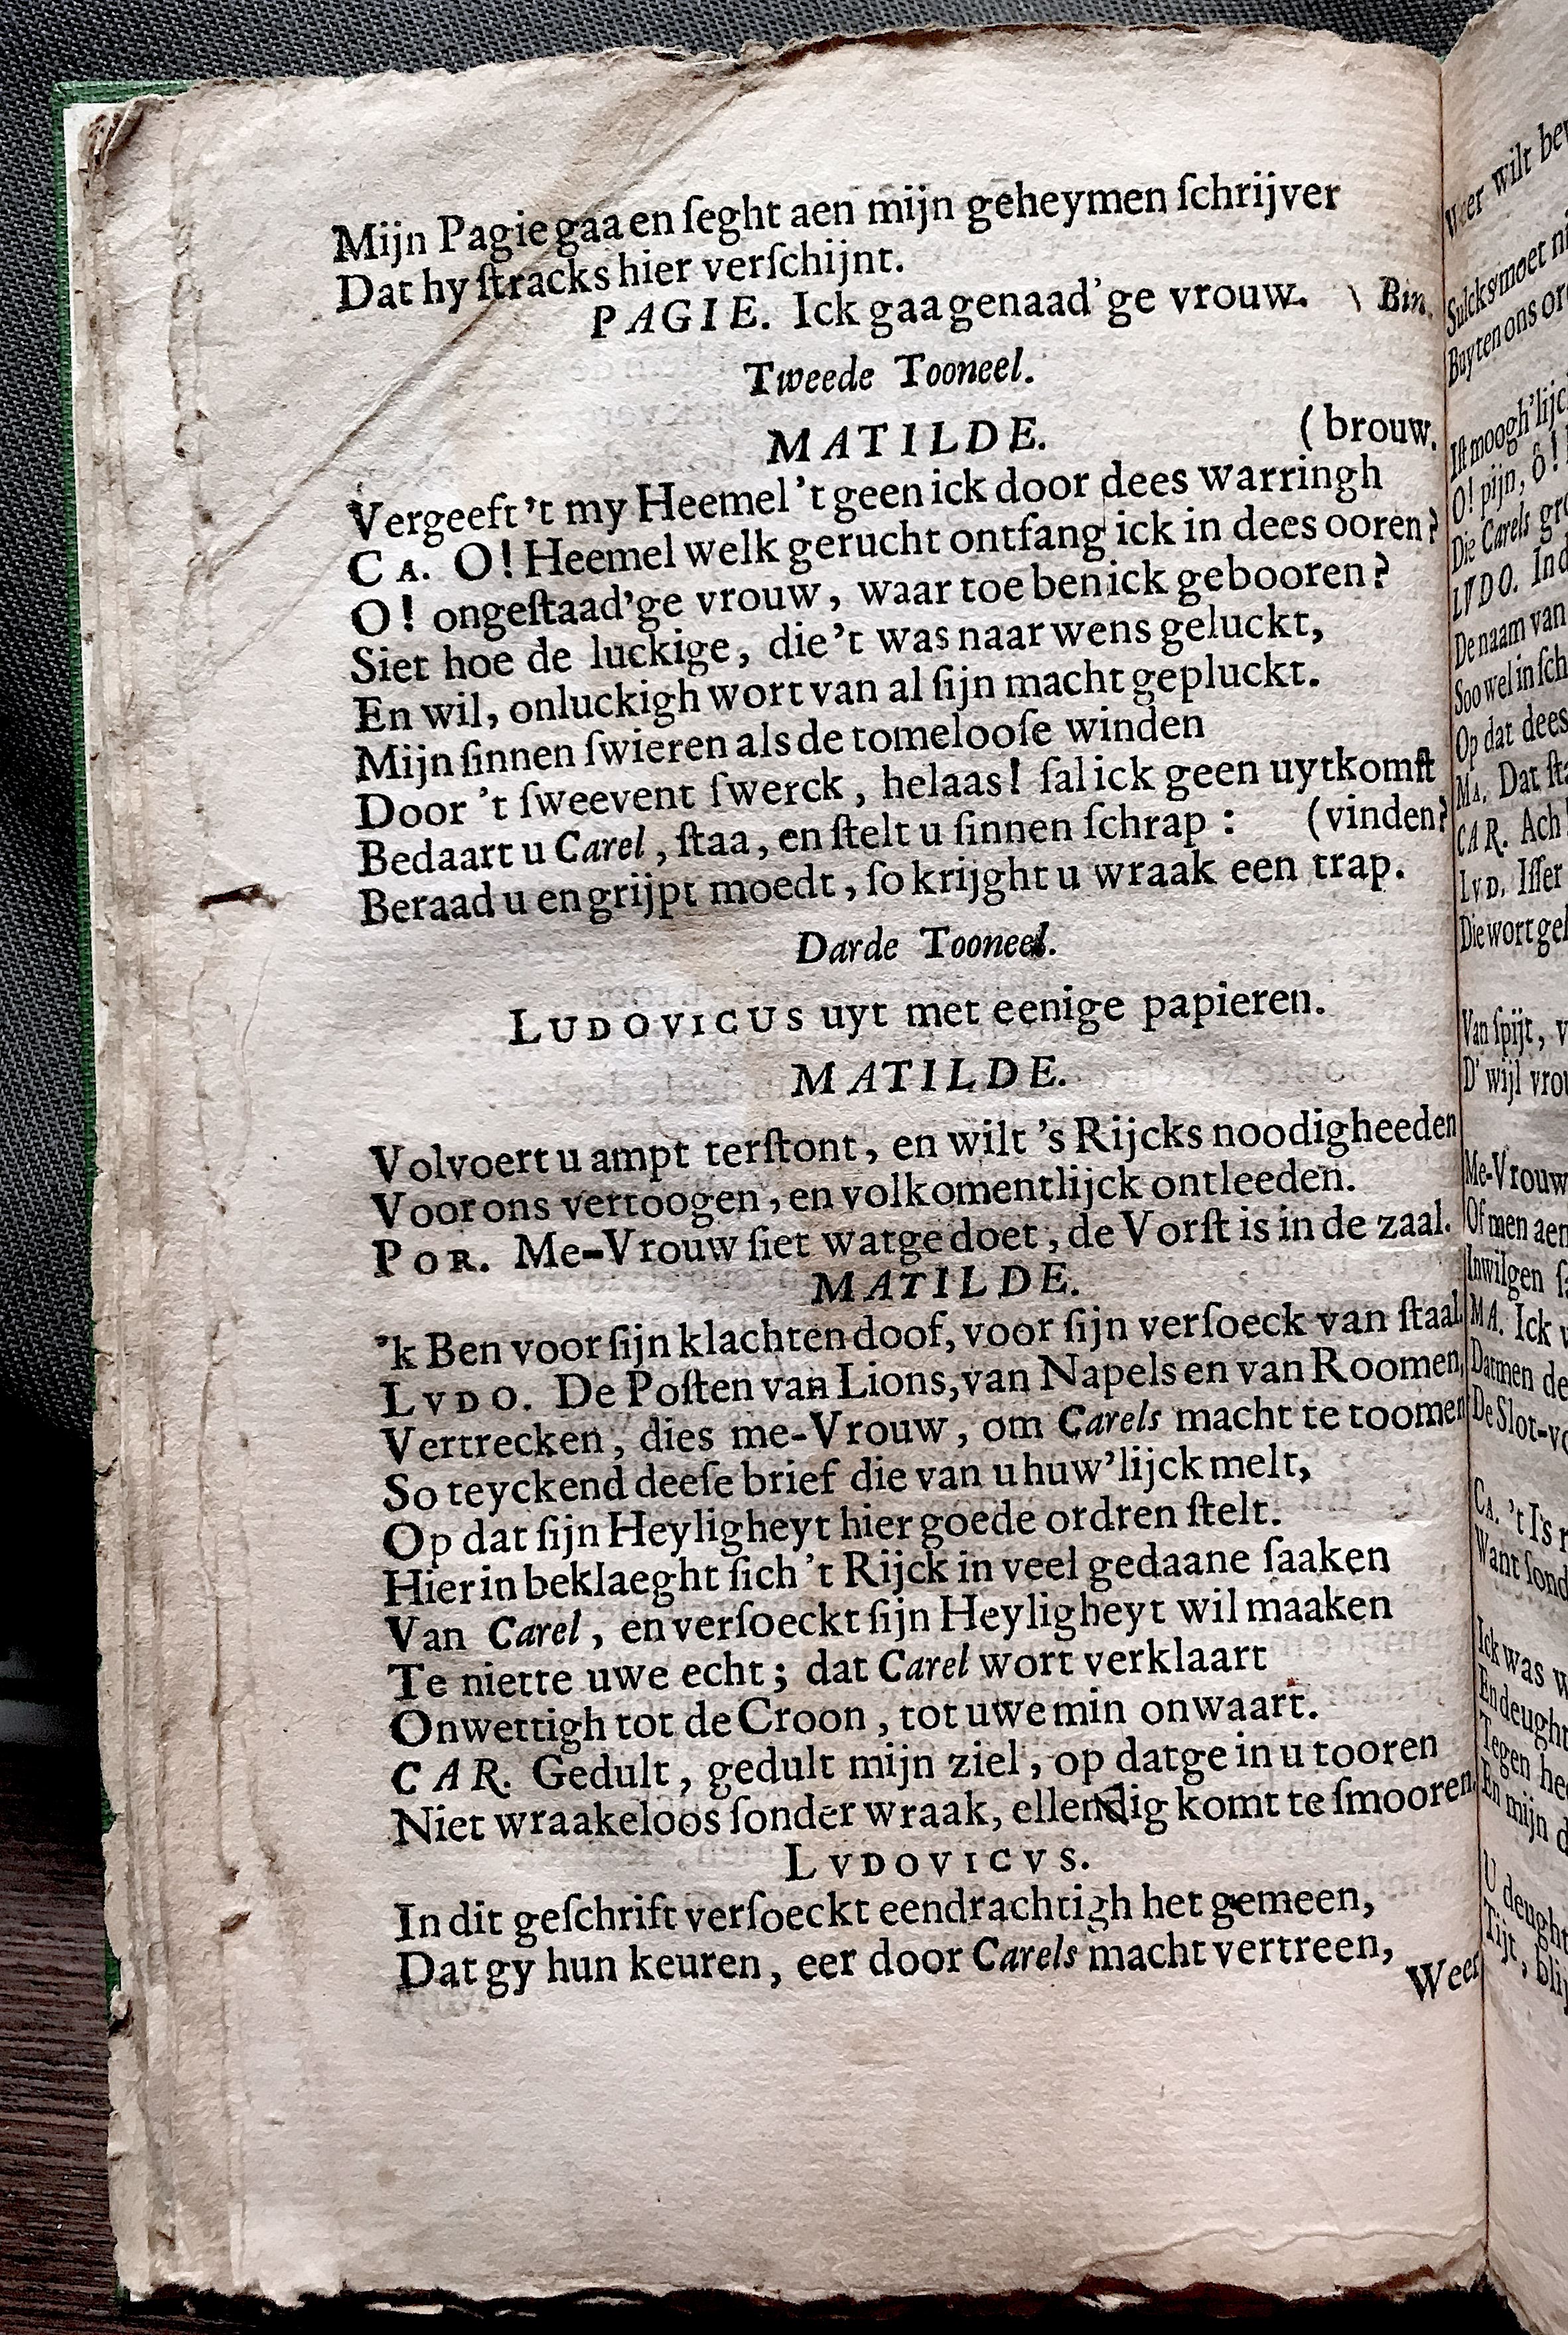 Mijn Pagie gaa en ſeght aen mijn geheymen ſchrijver
Dat hy ſtracks hier verſchijnt.
PAGIE. Ick gaa genaad'ge vrouw. \ Bin.
Tweede Tooneel.
MATILDE. (brouw.
Vergeeft 't my Heemel 't geen ick door dees warringh
CA. O! Heemel welk gerucht ontfang ick in dees ooren?
O! ongeſtaad'ge vrouw, waar toe ben ick gebooren?
Siet hoe de luckige, die 't was naar wens geluckt,
En wil, onluckigh wort van al ſijn macht gepluckt.
Mijn ſinnen ſwieren als de tomelooſe winden
Door 't ſweevent ſwerck, helaas! ſal ick geen uytkomſt
Bedaart u Carel, ſtaa, en ſtelt u ſinnen ſchrap: (vinden?
Beraad u en grijpt moedt, ſo krijght u wraak een trap.
Darde Tooneel.
LUDOVICUS uyt met eenige papieren.
MATILDE.
Volvoert u ampt terſtont, en wilt 's Rijcks noodigheeden
Voor ons vertoogen, en volkomentlijck ontleeden.
POR. Me-Vrouw ſiet wat ge doet, de Vorſt is in de zaal.
MATILDE.
'k Ben voor ſijn klachten doof, voor ſijn verſoeck van ſtaal.
LVDO. De Poſten van Lions, van Napels en van Roomen,
Vertrecken, dies me-Vrouw, om Carels macht te toomen
So teyckend deeſe brief die van u huw'lijck melt,
Op dat ſijn Heyligheyt hier goede ordren ſtelt.
Hier in beklaeght ſich 't Rijck in veel gedaane ſaaken
Van Carel, en verſoeckt ſijn Heyligheyt wil maaken
Te niette uwe echt; dat Carel wort verklaart
Onwettigh tot de Croon, tot uwe min onwaart.
CAR. Gedult, gedult mijn ziel, op dat ge in u tooren
Niet wraakeloos ſonder wraak, ellendig komt te ſmooren.
LVDOVICVS.
In dit geſchrift verſoeckt eendrachtigh het gemeen,
Dat gy hun keuren, eer door Carels macht vertreen,
Weer